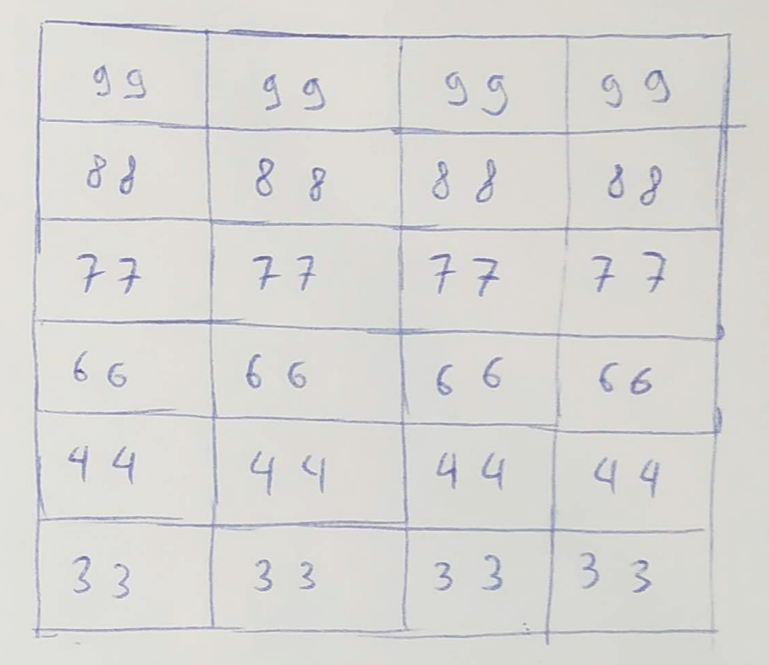 99 99 99 99
88 88 88 88
77 77 77 77
66 66 66 66
44 44 44 44
33 33 33 33